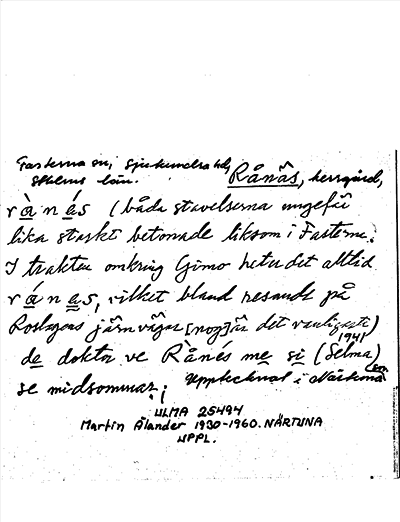 Fasterna sn, Sjuhundra hd,
Sthlms län. Rånäs, herrgård,
r à n á s (båda stavelserna ungefär
lika starkt betonade liksom i Fasterna.
I trakten omkring Gimo heter det alltid
r á n a s, vilket bland resande på
Roslagens järnvägar [nog] är det vanligaste)
1941
de dokta ve Rånés me si (Selma)
se midsommar; Upptecknat i Närtuna sn.
ULMA 25494
Martin Ålander 1930-1960. NÄRTUNA
UPPL.